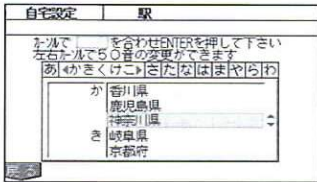 自宅設定 駅
カーソルで を合わせENTERを押して下さい
左右カーソルで50音の変更ができます
あ◀かきくけこ▶さたなはまやらわ
か 香川県
鹿児島県
神奈川県
き 岐阜県
京都府
戻る